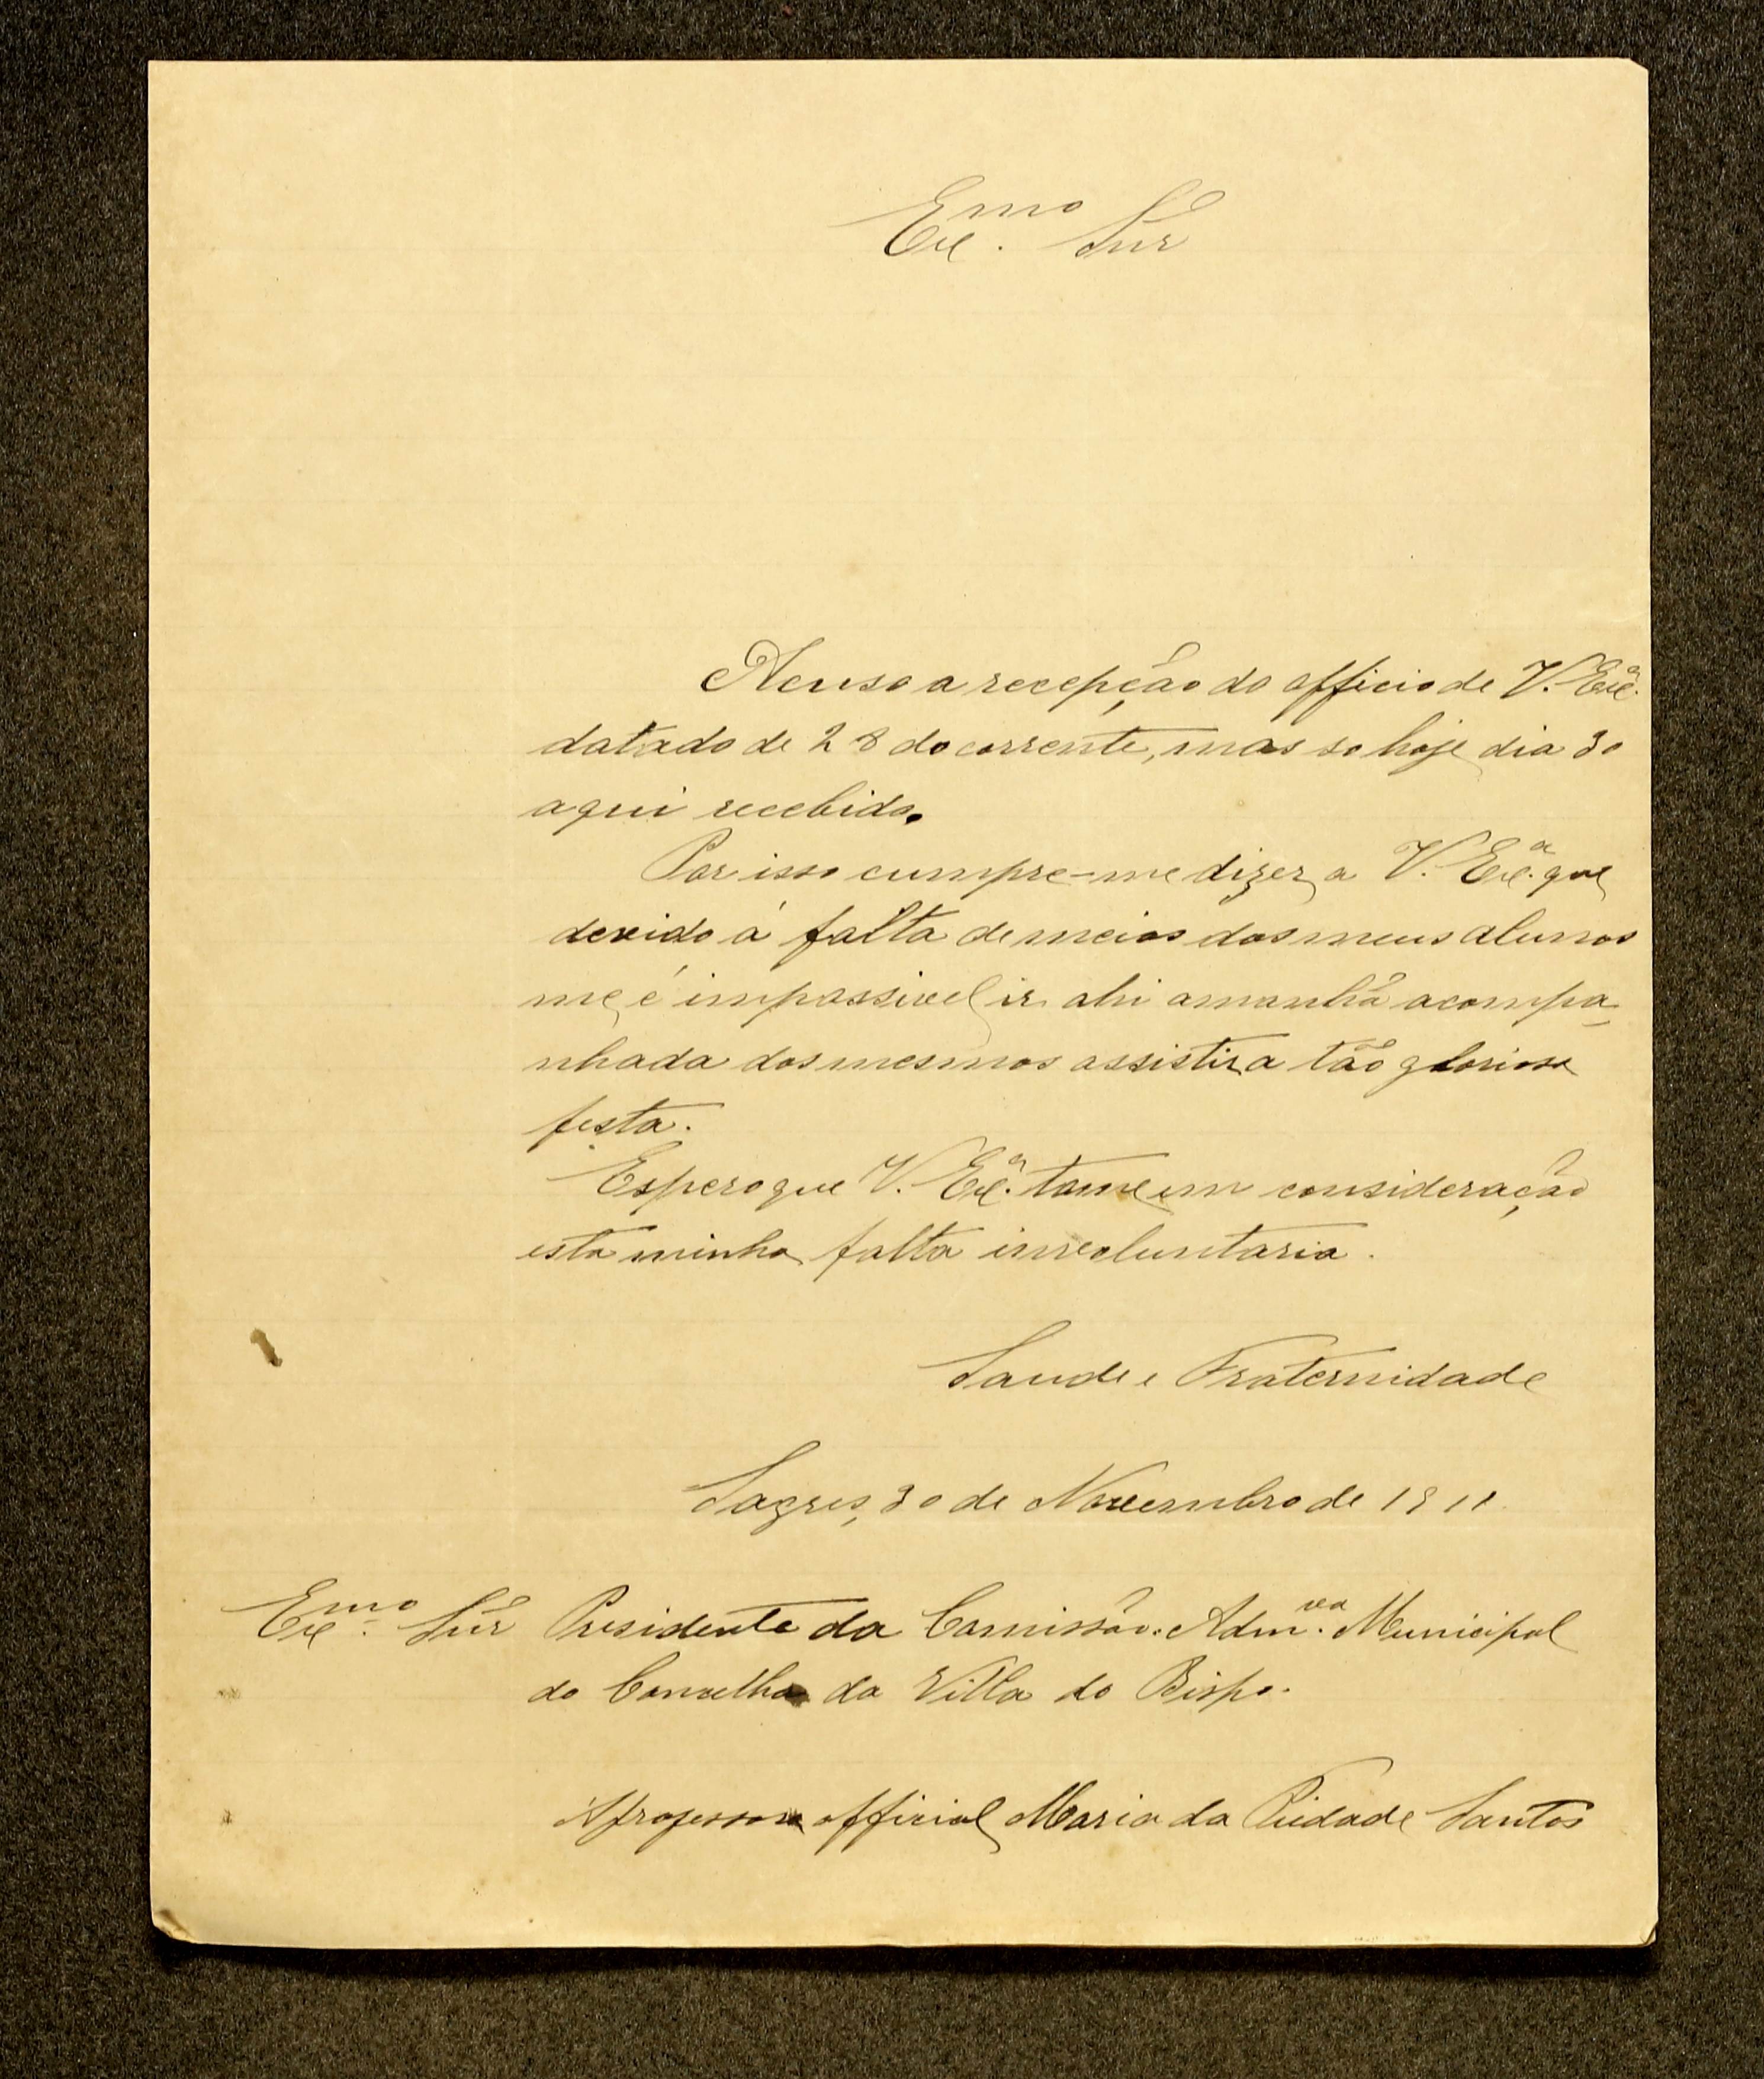 Exmo. Snr
Acuso a recepção do officio de V. Exa.
datado de 28 do corrente, mas so hoje dia 30
aqui recebido.
Por isso cumpre-me dizer a V. Exa. que
devido á falta de meios dos meus alunos
me é impossivel ir ahi amanhã acompa-
nhada dos mesmos assistir a tão gloriosa
festa.
Espero que V. Exa. tome em consideração
esta minha falta involuntaria.
Saude e Fraternidade
Sagres, 30 de Novembro de 1911
Exmo. Snr Presidente da Comissão Admva. Municipal
do Concelho da Villa do Bispo.
A professora official Maria da Piedade Santos